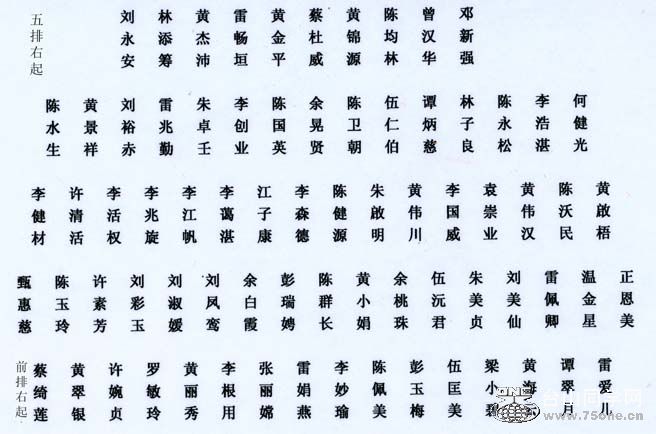 五排右起
刘永安 林添筹 黄杰沛 雷畅垣 黄金平 蔡杜威 黄锦源 陈均林 曾汉华 邓新强
陈水生 黄景祥 刘裕赤 雷兆勤 朱卓壬 李创业 陈国英 余晃贤 陈卫朝 伍仁伯 谭炳慈 林子良 陈永松 李浩湛 何健光
李健材 许清活 李活权 李兆旋 李江帆 李蔼湛 江子康 李森德 陈健源 朱啟明 黄伟川 李国威 袁崇业 黄伟汉 陈沃民 黄啟梧
甄惠慈 陈玉玲 许素芳 刘彩玉 刘淑媛 刘凤鸾 余白霞 彭瑞娉 陈群长 黄小娟 余桃珠 伍沅君 朱美贞 刘美仙 雷佩卿 温金星 正恩美
前排右起
蔡绮莲 黄翠银 许婉贞 罗敏玲 黄丽秀 李根用 张丽嫦 雷娟燕 李妙瑜 陈佩美 彭玉梅 伍匡美 梁小碧 黄海 谭翠月 雷爱儿
台山同学网
www.75one.cn